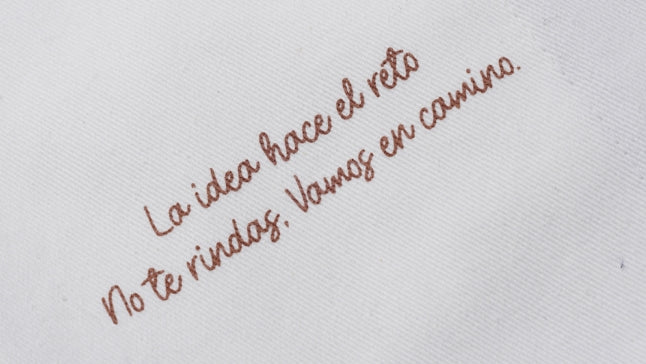 La idea hace el reto
No te rindas. Vamos en camino.